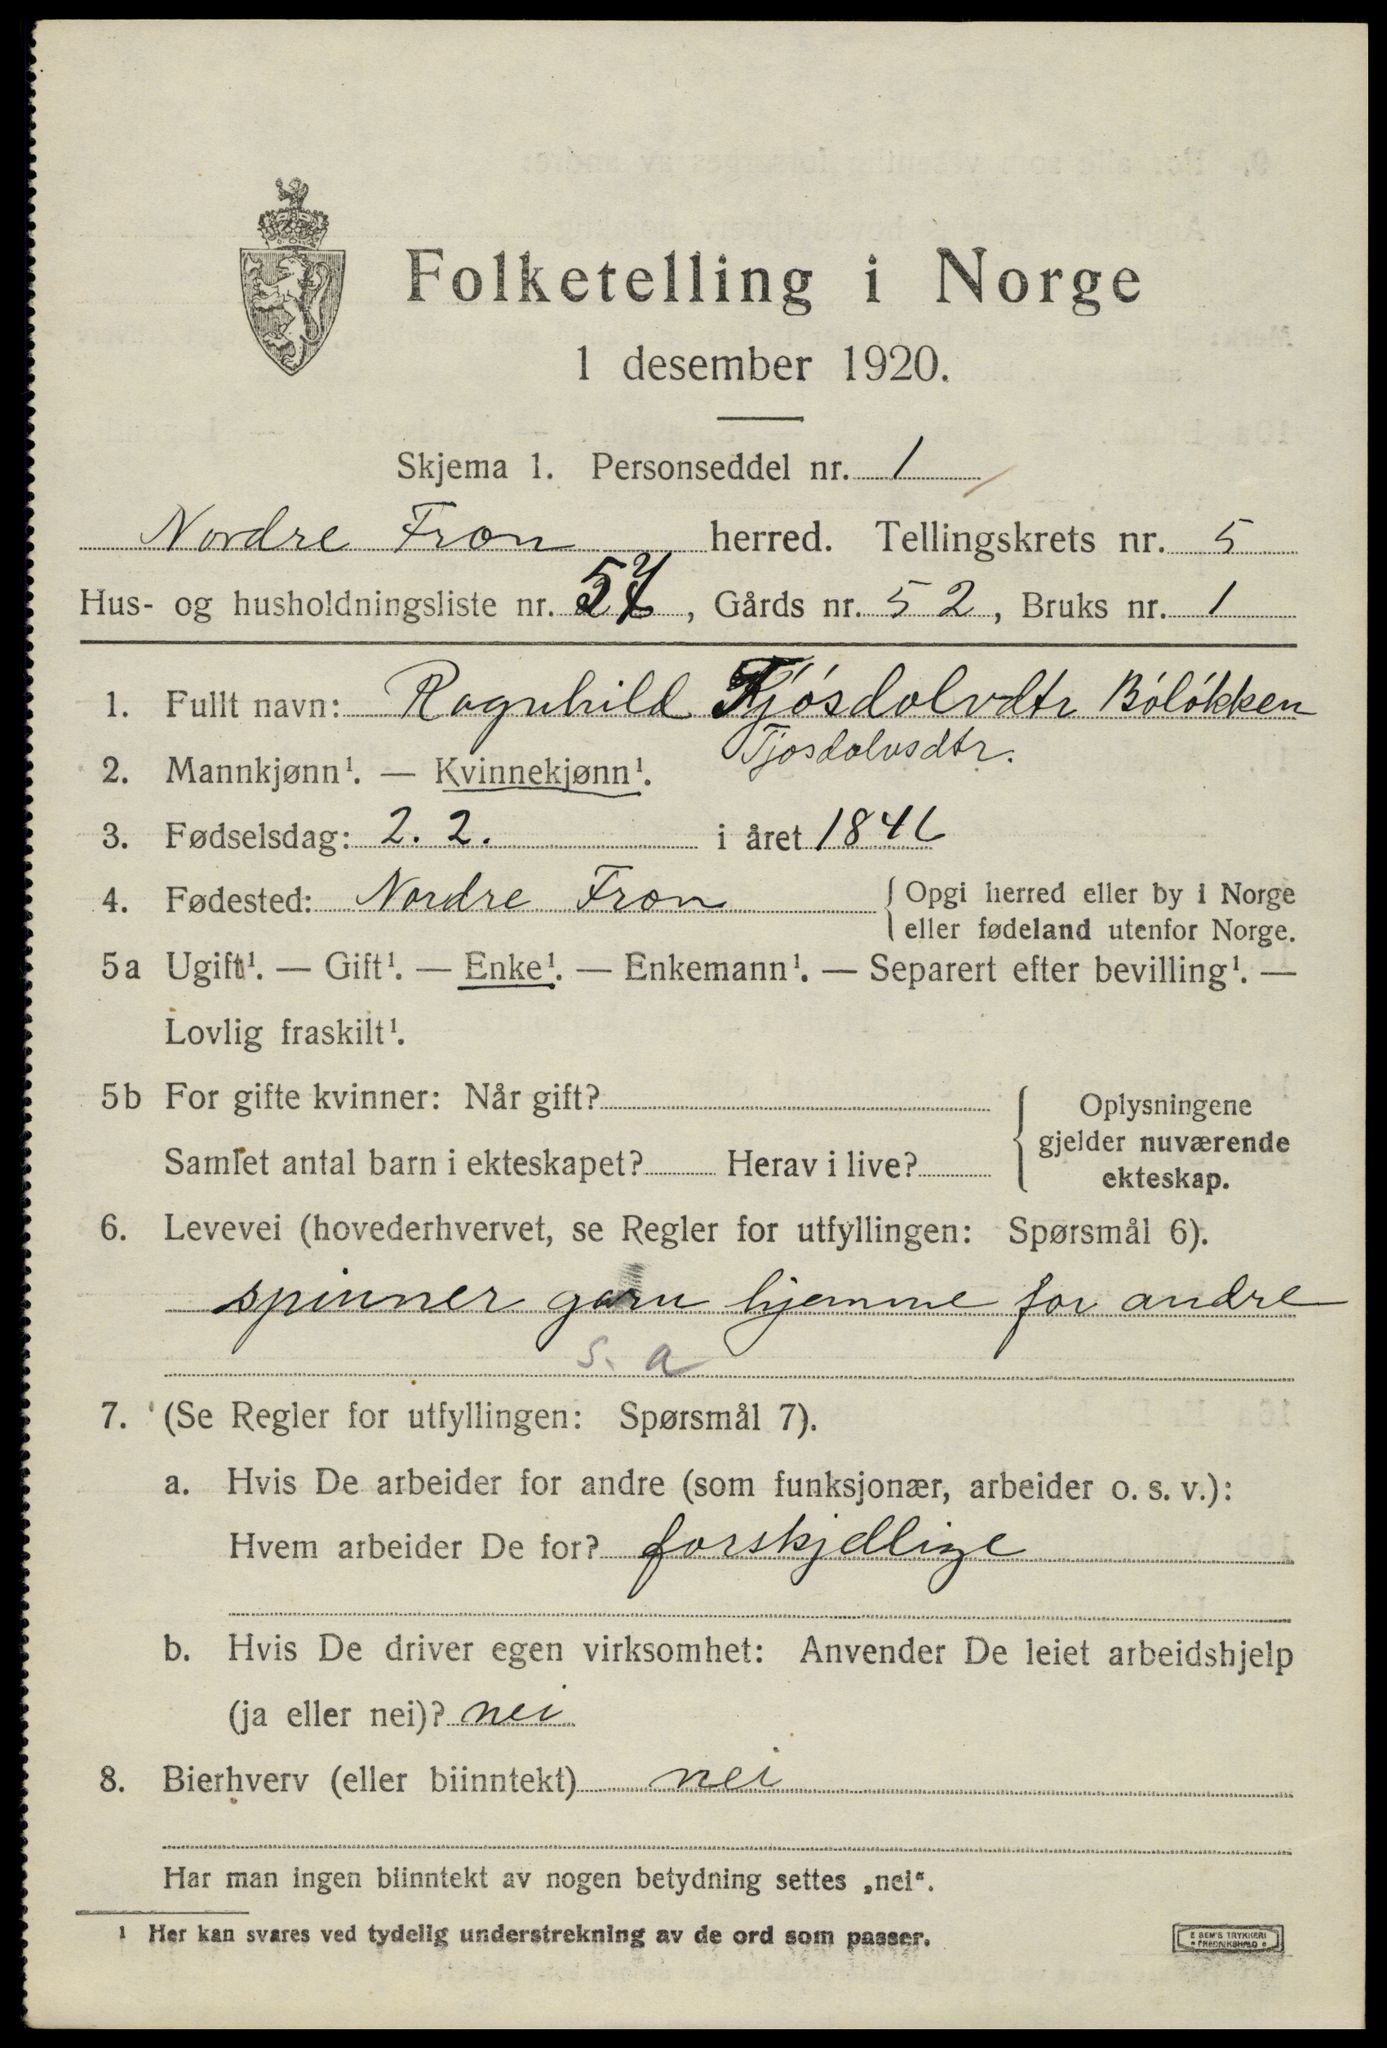 Folketelling i Norge
1 desember 1920.
Skjema 1. Personseddel nr. 1
Nordre Fron herred. Tellingskrets nr. 5
Hus- og husholdningsliste nr. 57, Gårds nr. 52, Bruks nr. 1
1. Fullt navn: Ragnhild Tjósdolvdtr Bóløkken
Tjosdolvsdtr.
2. Mannkjønn¹. — Kvinnekjønn¹.
3. Fødselsdag: 2. 2. i året 1846
4. Fødested: Nordre Fron { Opgi herred eller by i Norge
eller fødeland utenfor Norge.
5a Ugift¹. — Gift¹. — Enke¹. — Enkemann¹. — Separert efter bevilling¹. —
Lovlig fraskilt¹.
5b For gifte kvinner: Når gift? { Oplysningene
gjelder nuværende
Samlet antal barn i ekteskapet? Herav i live? ekteskap.
6. Levevei (hovederhvervet, se Regler for utfyllingen: Spørsmål 6).
spinner garn hjemme for andre
s. a
7. (Se Regler for utfyllingen: Spørsmål 7).
a. Hvis De arbeider for andre (som funksjonær, arbeider o. s. v.):
Hvem arbeider De for? forskjellige
b. Hvis De driver egen virksomhet: Anvender De leiet arbeidshjelp
(ja eller nei)? nei
8. Bierhverv (eller biinntekt) nei
Har man ingen biinntekt av nogen betydning settes „nei“.
¹ Her kan svares ved tydelig understrekning av de ord som passer.
E SEM'S TRYKKERI
• FREDRIKSHALD •